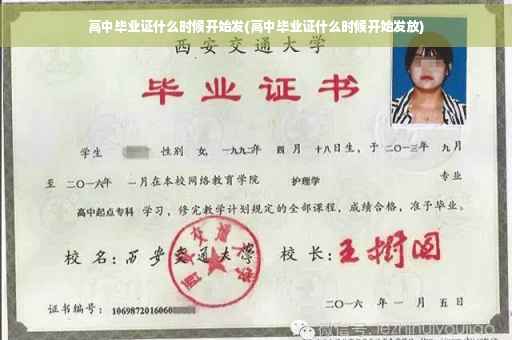 高中毕业证什么时候开始发(高中毕业证什么时候开始发放)
西安交通大学
毕业证书
学生 性别 女, 一九九二年 四月 十八日生, 于二〇一三年 九月
至 二〇一六年 一月在本校网络教育学院 护理学 专业
高中起点专科 学习, 修完教学计划规定的全部课程, 成绩合格, 准予毕业。
校 名: 西安交通大学 校 长: 王树国
西安交通大学
证书编号: 1069872016060
二〇一六 年 一 月 五 日
微信号: jezhihuiyoujiao